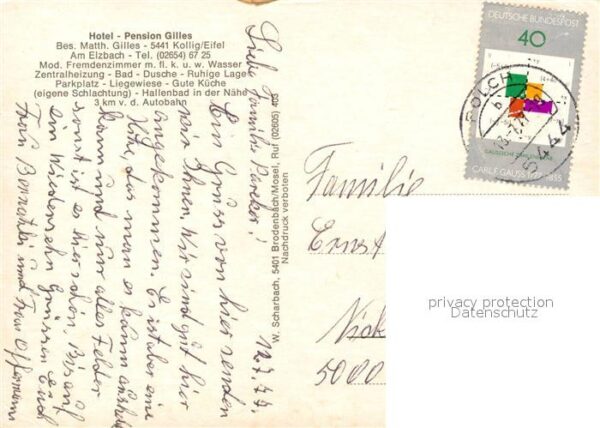 Hotel - Pension Gilles
Bes. Matth. Gilles - 5441 Kollig/Eifel
Am Elzbach - Tel. (02654) 67 25
Mod. Fremdenzimmer m. fl. k. u. w. Wasser
Zentralheizung - Bad - Dusche - Ruhige Lage
Parkplatz - Liegewiese - Gute Küche
(eigene Schlachtung) - Hallenbad in der Nähe
3 km v. d. Autobahn
12.7.77.
Liebe Familie
Ein Gruss von hier senden
wir Ihnen. Wir sind gut hier
angekommen. Es ist aber eine
Hitze, das man es kaum aushalten
kann und nur alles Felder
sonst ist es hier schön. Bis auf
ein Wiedersehn Grüssen Euch
Frau und Frau
W. Scharbach, 5401 Brodenbach/Mosel, Ruf (02605) 408
Nachdruck verboten
DEUTSCHE BUNDESPOST
40
CARL F. GAUSS
POLCH
Familie
Ernst
5000
privacy protection
Datenschutz